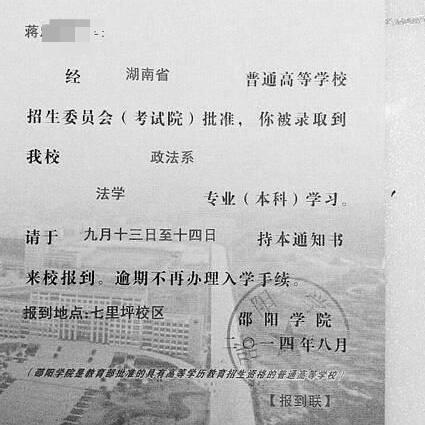 蒋
经 湖南省 普通高等学校
招生委员会（考试院）批准，你被录取到
我校 政法系
法学 专业（本科）学习。
请于 九月十三日至十四日 持本通知书
来校报到。逾期不再办理入学手续。
报到地点:七里坪校区 邵阳学院
二〇一四年八月
（邵阳学院是教育部批准的具有高等学历教育招生资格的普通高等学校）
【报到联】